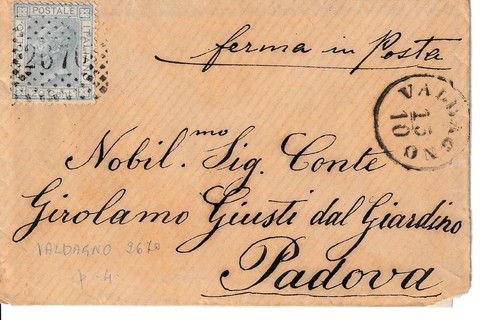 POSTALE
2670
ferma in Posta
VALDAGNO
13
10
Nobil.mo Sig. Conte
Girolamo Giusti dal Giardino
Padova
VALDAGNO 2670
p. 4.